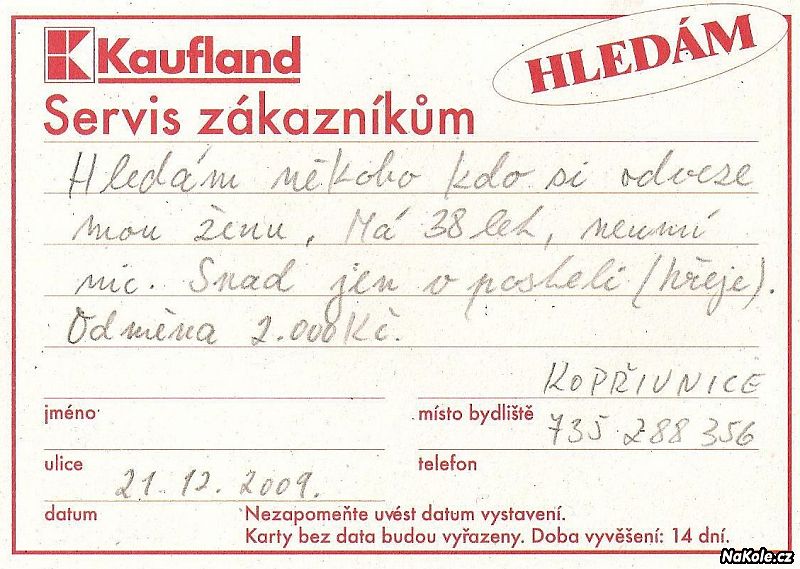 Kaufland
HLEDÁM
Servis zákazníkům
Hledám někoho kdo si odveze
mou ženu, Má 38 let, neumí
nic. Snad jen v posteli (hřeje).
Odměna 2.000 Kč.
KOPŘIVNICE
jméno
místo bydliště
735 288 356
ulice
telefon
21. 12. 2009.
datum
Nezapomeňte uvést datum vystavení.
Karty bez data budou vyřazeny. Doba vyvěšení: 14 dní.
NaKole.cz